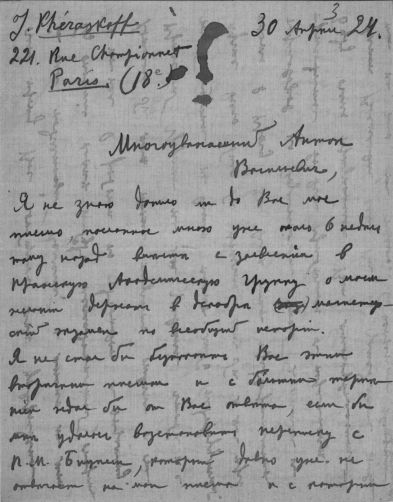 J. Phéraskoff
3
30 Апрѣл 24.
221. Rue Championnet
Paris (18e)
Многоуважаемый Антон
Васильевич,
Я не знаю дошло ли до Вас мое
письмо посланное мною уже около 6 недѣль
тому назад вмѣстѣ с заявленiем в
Пражскую Академическую Группу о моем
желанiи держать в декабрѣ магистер-
скiй экзамен по всеобщей исторiи.
Я не стал бы Вас этим
вторичным письмом и с большим терпѣ-
нiем ждал бы от Вас отвѣта, если бы
мнѣ удалось возстановить переписку с
П.М. который давно уже не
отвѣчает на мои письма и с которым